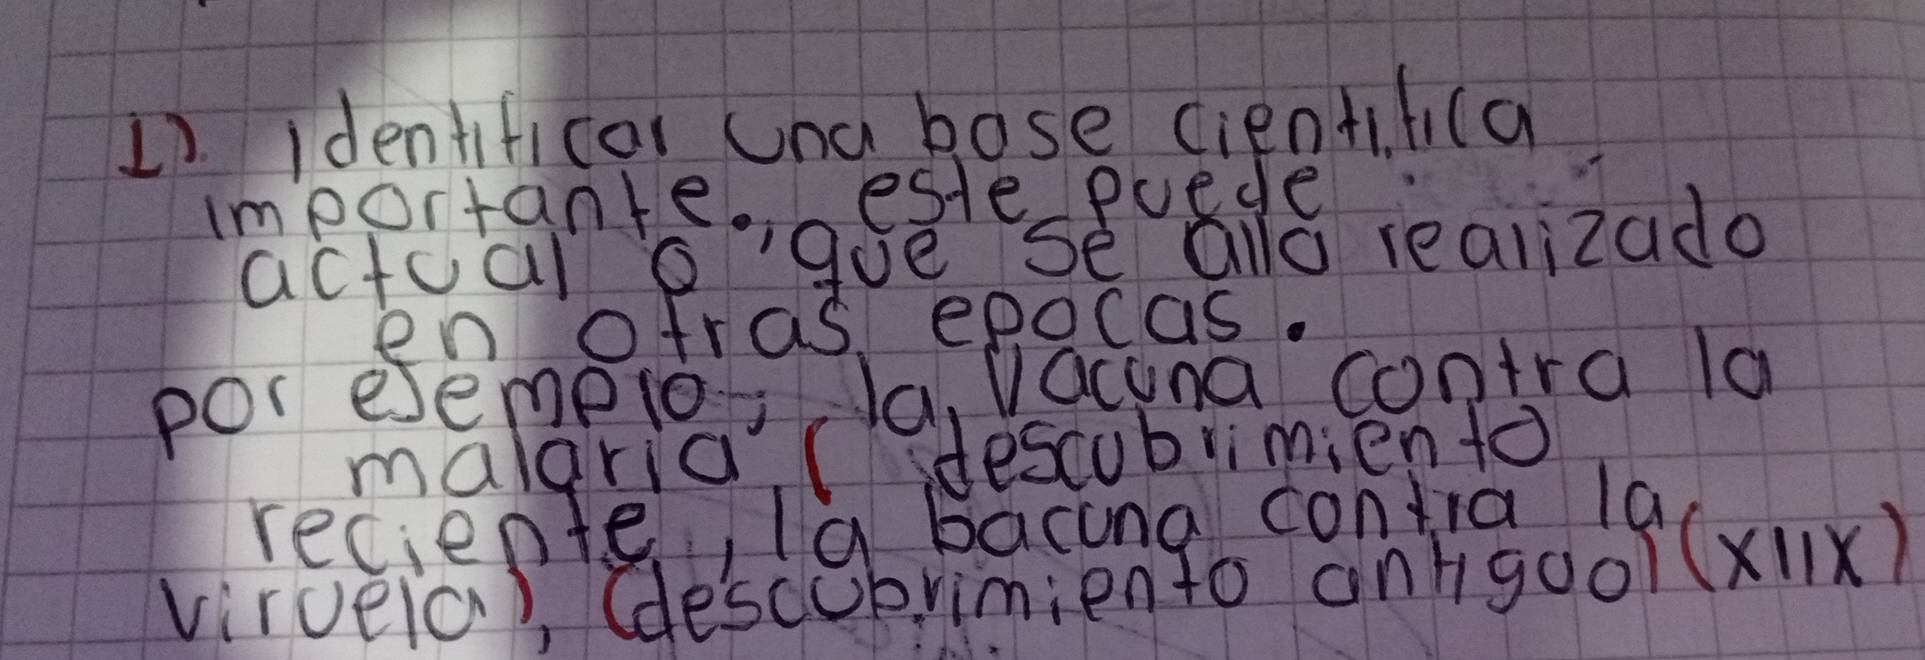 1). identificar una base cientifica
importante., este puede
actual o que se alla realizado
en otras epocas.
por ejemplo, la vacuna contra la
malaria ( descubrimiento
reciente, la bacuna contra la
viruela), (descubrimiento antiguo) (XIIX)